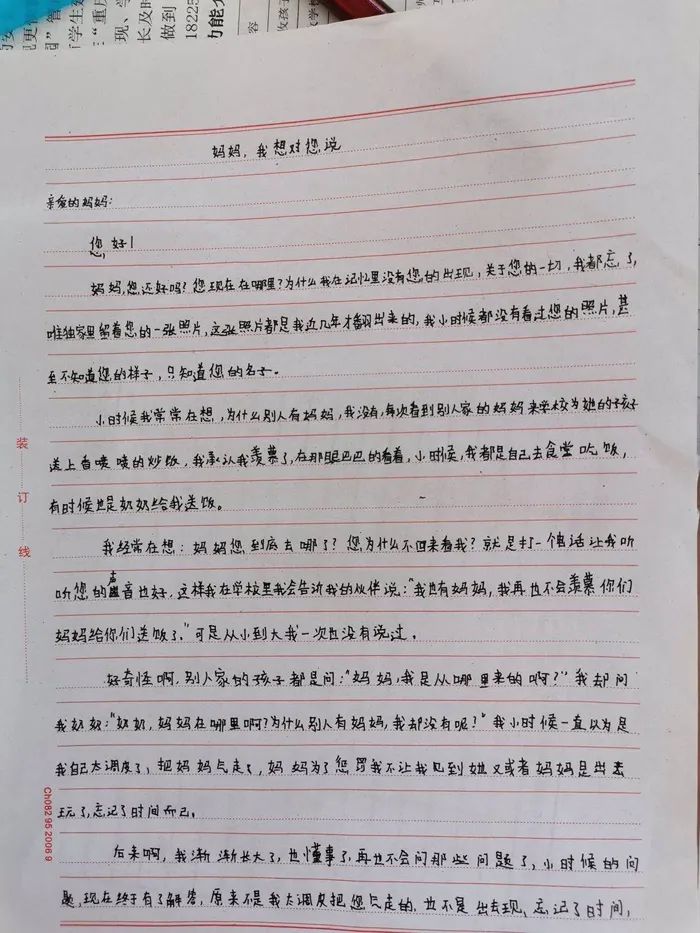 重度
现、学
长及时
做到
18225
功能
容
妈妈，我想对您说
亲爱的妈妈：
您好！
妈妈，您还好吗？您现在在哪里？为什么我在记忆里没有您的出现，关于您的一切，我都忘了，
唯独家里留着您的一张照片，这张照片都是我近几年才翻出来的，我小时候都没有看过您的照片，甚
至不知道您的样子，只知道您的名子。
小时候我常常在想，为什么别人有妈妈，我没有，每次看到别人家的妈妈来学校为她的孩子
送上香喷喷的炒饭，我承认我羡慕了，在那眼巴巴的看着，小时候，我都是自己去食堂吃饭，
有时候也是奶奶给我送饭。
我经常在想：妈妈您到底去哪了？您为什么不回来看我？就是打一个电话让我听
听您的声音也好，这样我在学校里我会告诉我的伙伴说："我也有妈妈，我再也不会羡慕你们
妈妈给你们送饭了。"可是从小到大我一次也没有说过。
好奇怪啊，别人家的孩子都是问："妈妈，我是从哪里来的啊？"我却问
我奶奶："奶奶，妈妈在哪里啊？为什么别人有妈妈，我却没有呢？"我小时候一直以为是
我自己太调皮了，把妈妈气走了，妈妈为了惩罚我不让我见到她又或者妈妈是出去
玩了，忘记了时间而已。
后来啊，我渐渐长大了，也懂事了，再也不会问那些问题了，小时候的问
题，现在终于有了解答，原来不是我太调皮把您气走的，也不是出去现、忘记了时间，
装
订
线
Ch082 95 2006 9